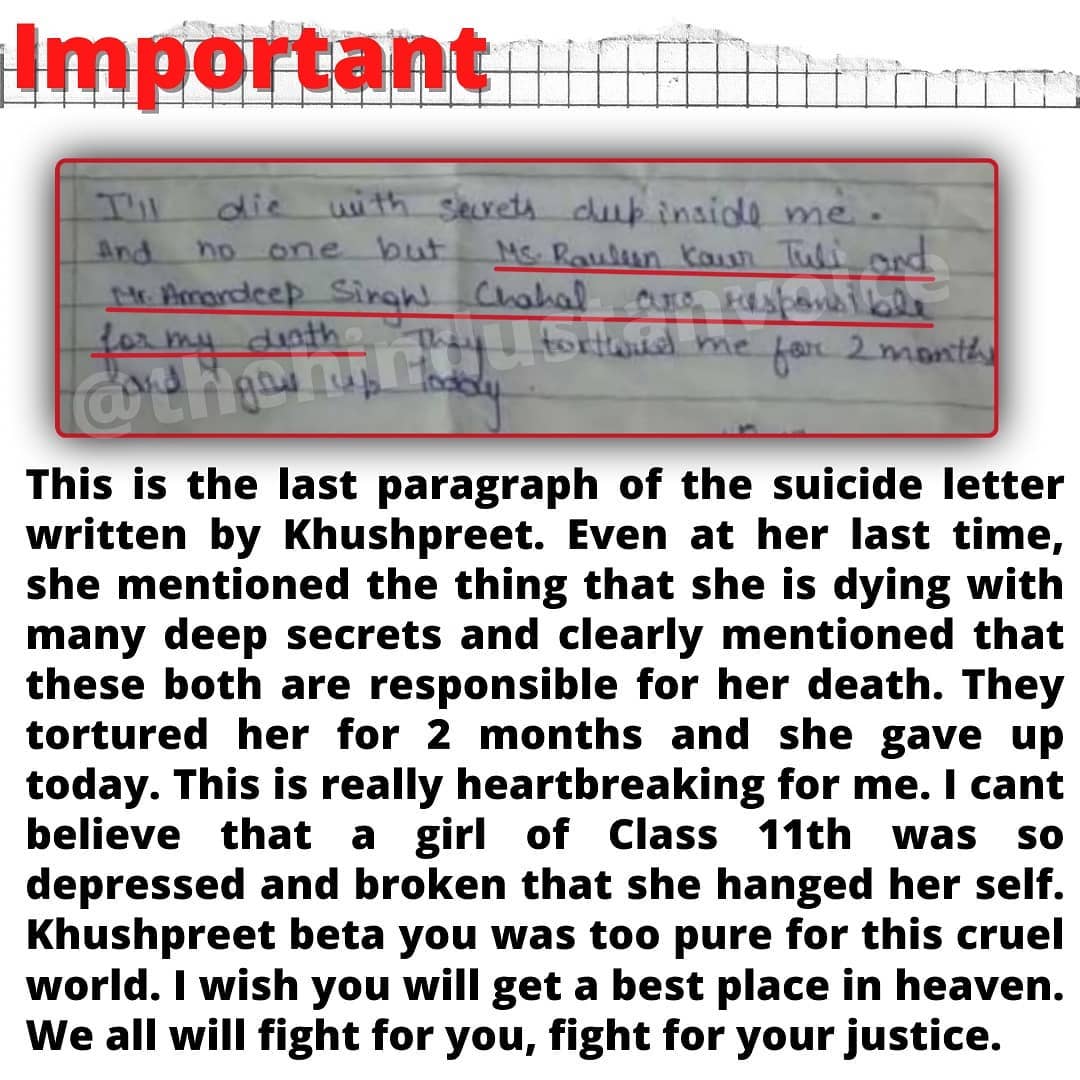 Important
I'll die with secrets deep inside me.
And no one but Ms. Rauleen Kaur Tuli and
Mr. Amardeep Singh Chahal are responsible
for my death. They tortured me for 2 months
and gave up Today.
@thehindustanvoice
This is the last paragraph of the suicide letter
written by Khushpreet. Even at her last time,
she mentioned the thing that she is dying with
many deep secrets and clearly mentioned that
these both are responsible for her death. They
tortured her for 2 months and she gave up
today. This is really heartbreaking for me. I cant
believe that a girl of Class 11th was so
depressed and broken that she hanged her self.
Khushpreet beta you was too pure for this cruel
world. I wish you will get a best place in heaven.
We all will fight for you, fight for your justice.